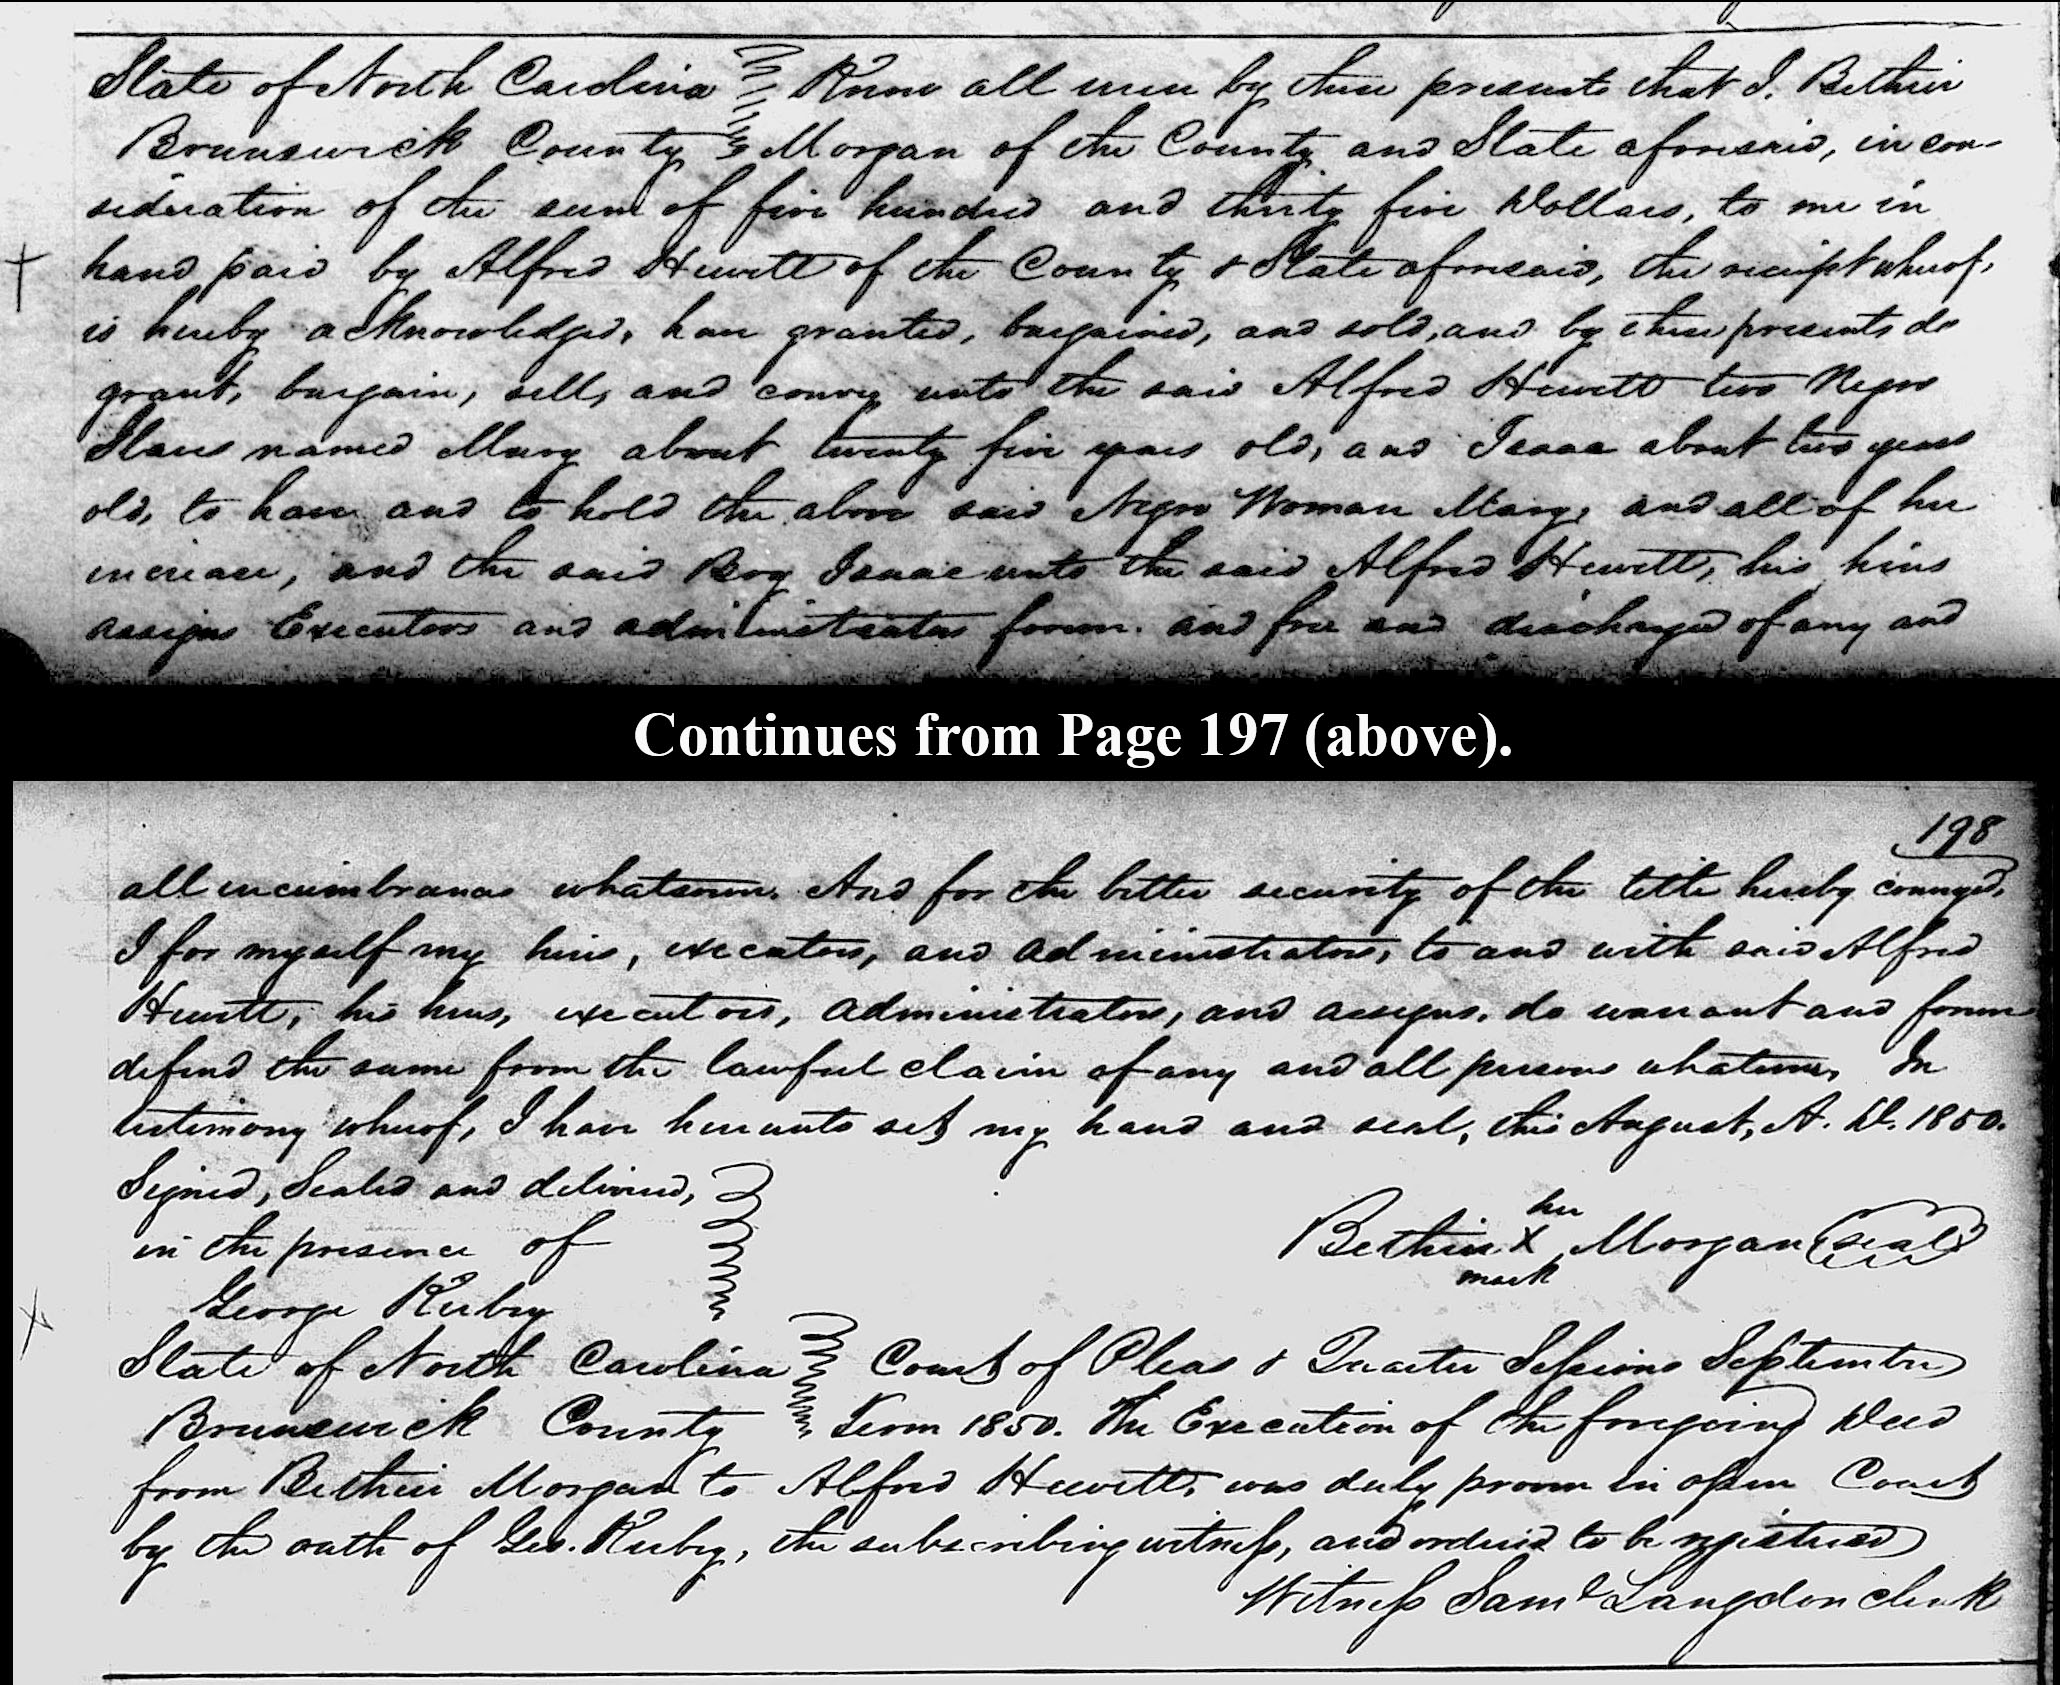 State of North Carolina Know all men by these presents that I, Bethier
Brunswick County Morgan of the County and State aforesaid, in con-
sideration of the sum of five hundred and thirty five Dollars, to me in
hand paid by Alfred Hewett of the County & State aforesaid, the receipt whereof,
is hereby acknowledged, have granted, bargained, and sold, and by these presents do
grant, bargain, sell, and convey unto the said Alfred Hewett two Negro
Slaves named Mary about twenty five years old, and Isaac about two years
old, to have and to hold the above said Negro Woman Mary, and all of her
increase, and the said Boy Isaac unto the said Alfred Hewett, his heirs
assigns Executors and administrators forever. and free and discharged of any and
Continues from Page 197 (above).
198
all incumbrances whatsoever. And for the better security of the title hereby conveyed,
I for myself my heirs, executors, and administrators, to and with said Alfred
Hewett, his heirs, executors, administrators, and assigns, do warrant and forever
defend the same from the lawful claim of any and all persons whatever, In
testimony whereof, I have hereunto set my hand and seal, this August, A. D. 1850.
Signed, Sealed and delivered,
in the presence of
her
Bethier X Morgan (seal)
mark
George Kirby
State of North Carolina Court of Pleas & Quarter Sessions September
Brunswick County Term 1850. The Execution of the foregoing Deed
from Bethier Morgan to Alfred Hewett, was duly proven in open Court
by the oath of Geo. Kirby, the subscribing witness, and ordered to be registered
Witness Saml Langdon clerk